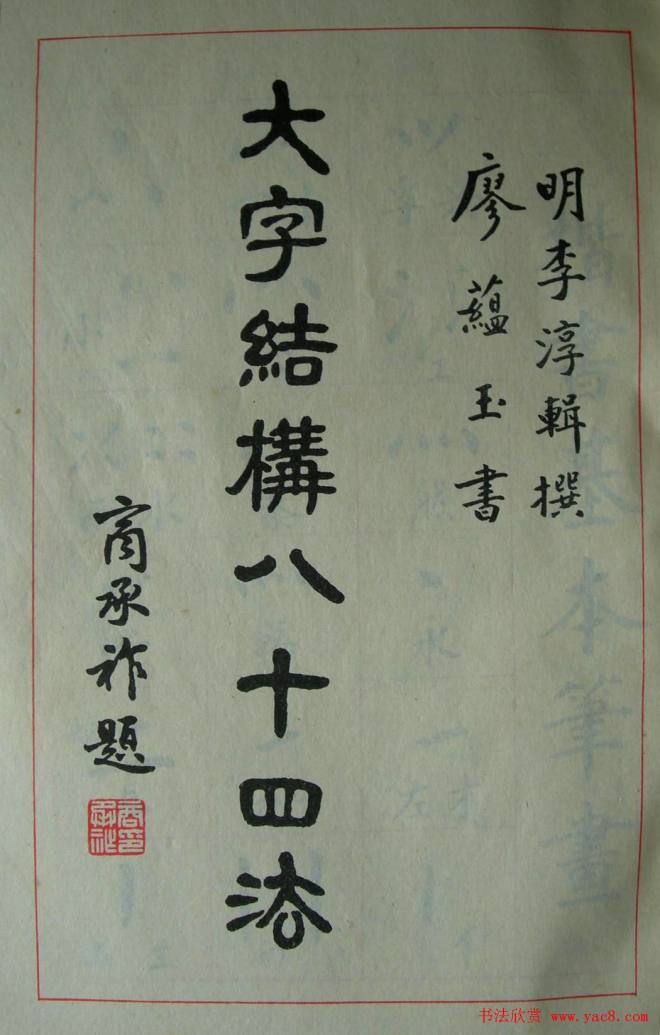 明李淳輯撰
廖蘊玉書
大字結構八十四法
商承祚題
商承祚印
书法欣赏 www.yac8.com